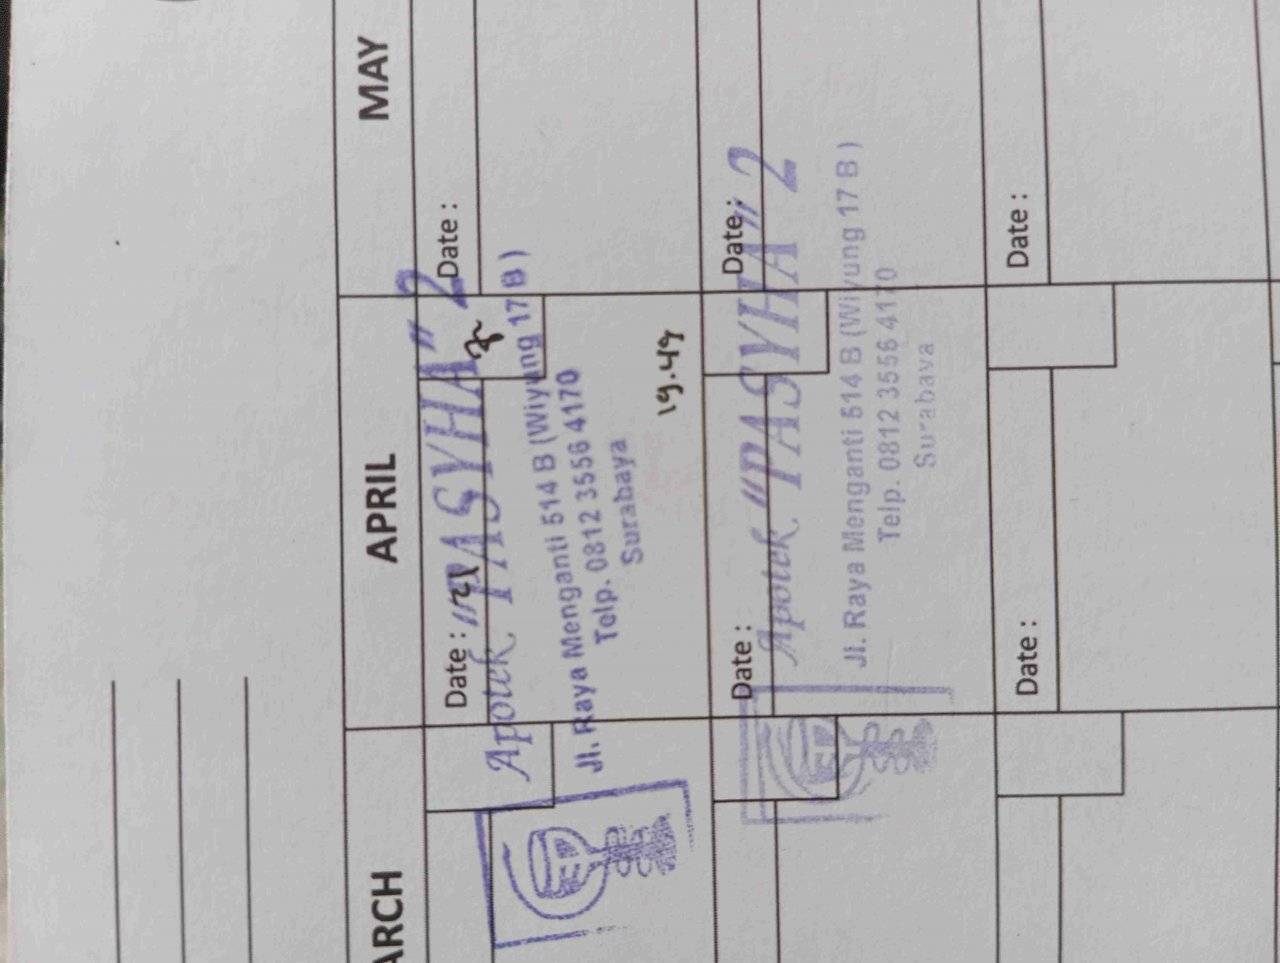 ARCH APRIL MAY
Date : 21
Date :
Apotek "PASYHA" 2
Jl. Raya Menganti 514 B (Wiyung 17 B )
Telp. 0812 3556 4170
Surabaya
19.49
Date :
Date :
Apotek "PASYHA" 2
Jl. Raya Menganti 514 B (Wiyung 17 B )
Telp. 0812 3556 4170
Surabaya
Date :
Date :